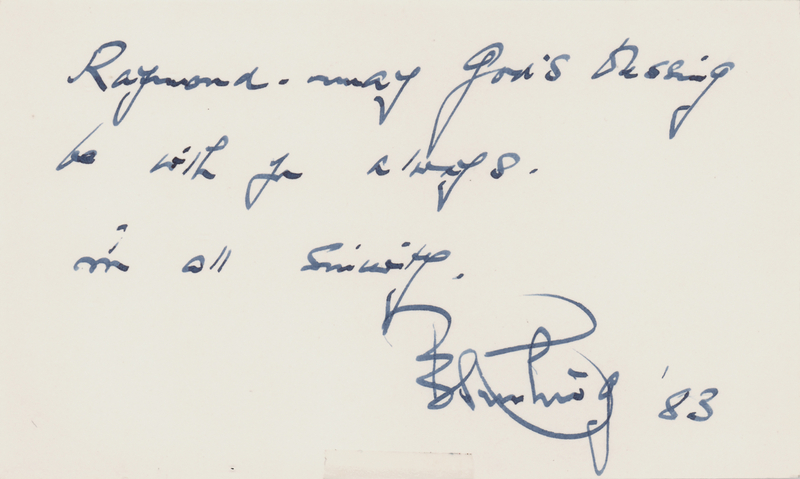 Raymond - may God's blessing
be with you always.
in all sincerity,
'83